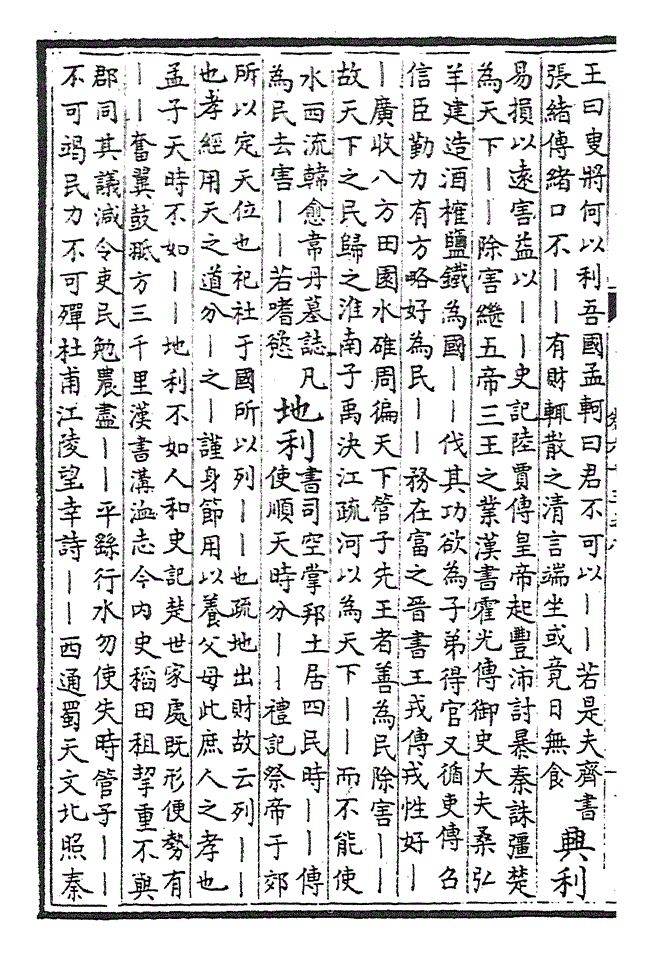 王曰叟將何以利吾國孟軻曰君不可以——若是夫齊書
張緒傳緒口不——有財輒散之清言端坐或竟日無食
興利
易損以遠害益以——史記陸賈傳皇帝起豐沛討暴秦誅彊楚
為天下——除害繼五帝三王之業漢書霍光傳御史大夫桑弘
羊建造酒榷鹽鐵為國——伐其功欲為子弟得官又循吏傳召
信臣勤力有方略好為民——務在富之晉書王戎傳戎性好—
—廣收八方田園水碓周徧天下管子先王者善為民除害——
故天下之民歸之淮南子禹決江疏河以為天下——而不能使
水西流韓愈韋丹墓誌凡
為民去害——若嗜慾
地利
書司空掌邦土居四民時——傳
使順天時分——禮記祭帝于郊
所以定天位也祀社于國所以列——也疏地出財故云列——
也孝經用天之道分—之—謹身節用以養父母此庶人之孝也
孟子天時不如——地利不如人和史記楚世家處既形便勢有
——奮翼鼓方三千里漢書溝洫志今內史稻田租挈重不與
郡同其議減令吏民勉農盡——平繇行水勿使失時管子——
不可竭民力不可殫杜甫江陵望幸詩——西通蜀天文北照秦